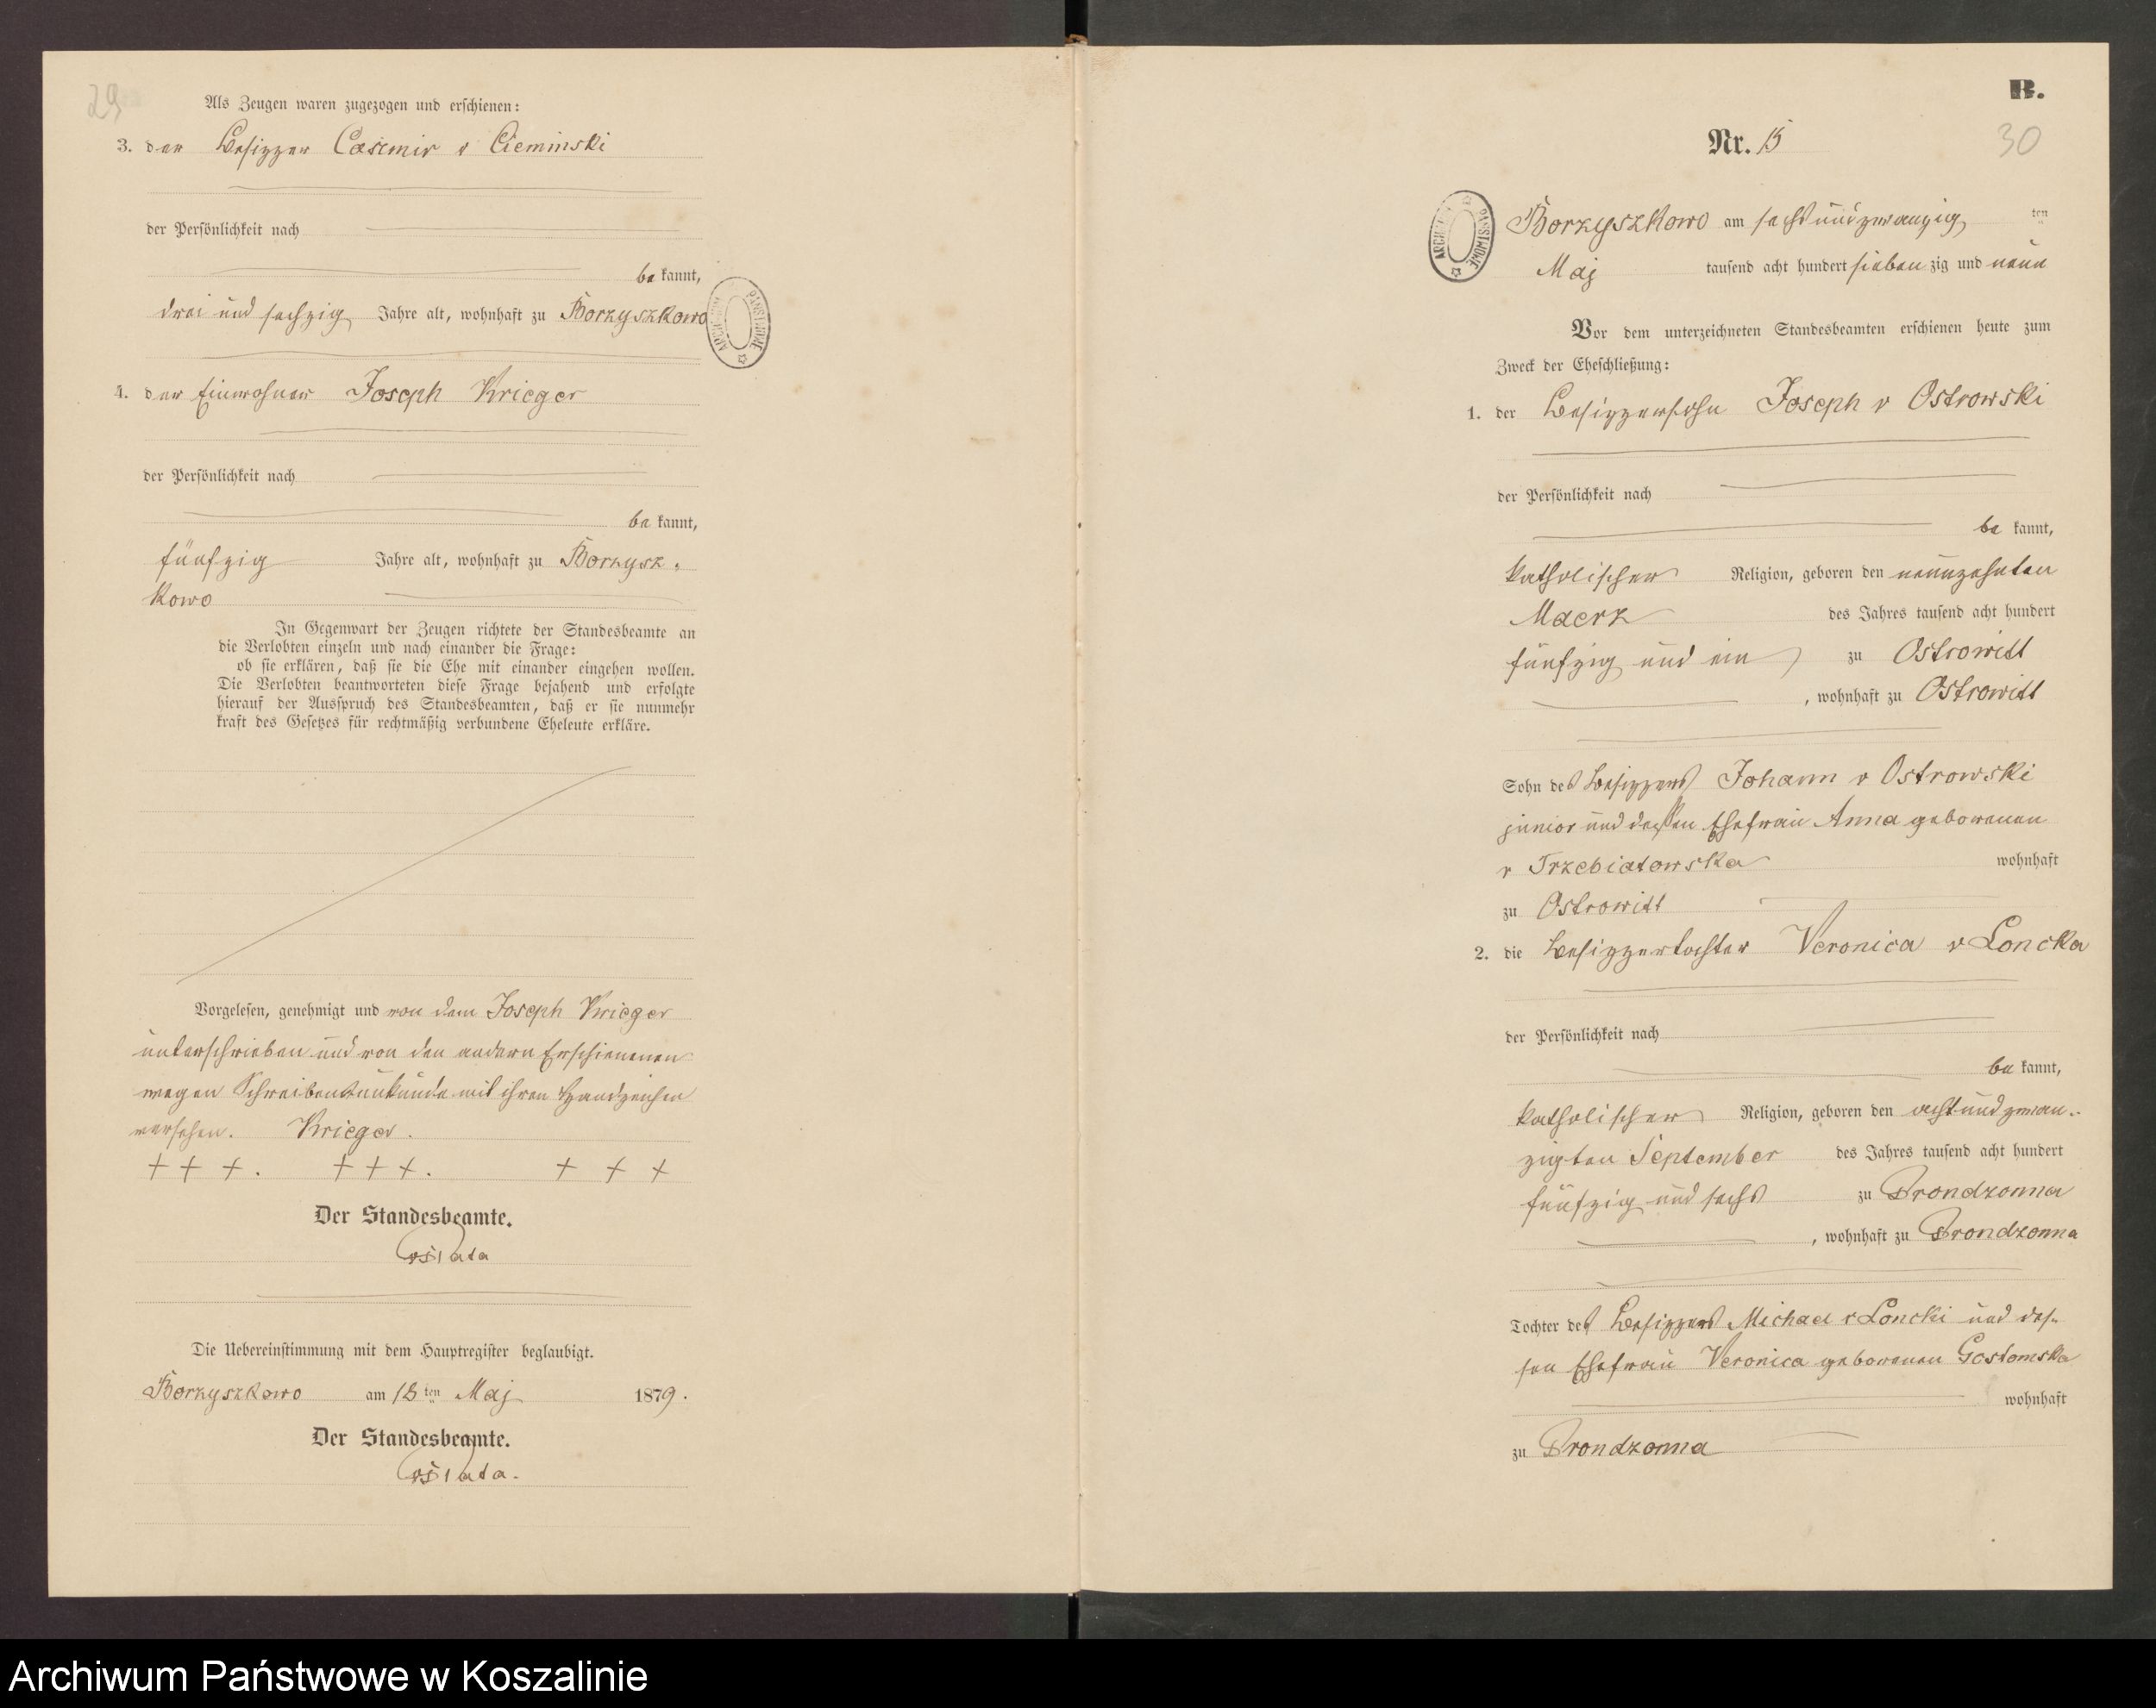 29
Als Zeugen waren zugezogen und erschienen:
3. der Besitzer Casimir v Cieminski
der Persönlichkeit nach
be kannt,
drei und sechzig Jahre alt, wohnhaft zu Borzyszkowo
4. der Einwohner Joseph Krieger
der Persönlichkeit nach
be kannt,
fünfzig Jahre alt, wohnhaft zu Borzysz-
kowo
In Gegenwart der Zeugen richtete der Standesbeamte an
die Verlobten einzeln und nach einander die Frage:
ob sie erklären, daß sie die Ehe mit einander eingehen wollen.
Die Verlobten beantworteten diese Frage bejahend und erfolgte
hierauf der Ausspruch des Standesbeamten, daß er sie nunmehr
kraft des Gesetzes für rechtmäßig verbundene Eheleute erkläre.
Vorgelesen, genehmigt und von dem Joseph Krieger
unterschrieben und von den andern Erschienenen
wegen Schreibensunkunde mit ihren Handzeichen
versehen. Krieger.
+ + +. + + +. + + +
Der Standesbeamte.
Die Uebereinstimmung mit dem Hauptregister beglaubigt.
Borzyszkowo am 18 ten Maj 1879.
Der Standesbeamte.
B.
Nr. 15
30
Borzyszkowo am sechsundzwanzig ten
Maj tausend acht hundert sieben zig und neun
Vor dem unterzeichneten Standesbeamten erschienen heute zum
Zweck der Eheschließung:
1. der Besitzersohn Joseph v Ostrowski
der Persönlichkeit nach
be kannt,
katholischer Religion, geboren den neunzehnten
Maerz des Jahres tausend acht hundert
fünfzig und ein zu Ostrowitt
, wohnhaft zu Ostrowitt
Sohn des Besitzers Johann v Ostrowski
junior und dessen Ehefrau Anna geborenen
v Trzebiatowska wohnhaft
zu Ostrowitt
2. die Besitzertochter Veronica v Loncka
der Persönlichkeit nach
be kannt,
katholischer Religion, geboren den achtundzwan-
zigten September des Jahres tausend acht hundert
fünfzig und sechs zu Prondzonna
, wohnhaft zu Prondzonna
Tochter des Besitzers Michael v Loncki und des-
sen Ehefrau Veronica geborenen Gostomska
wohnhaft
zu Prondzonna
Archiwum Państwowe w Koszalinie